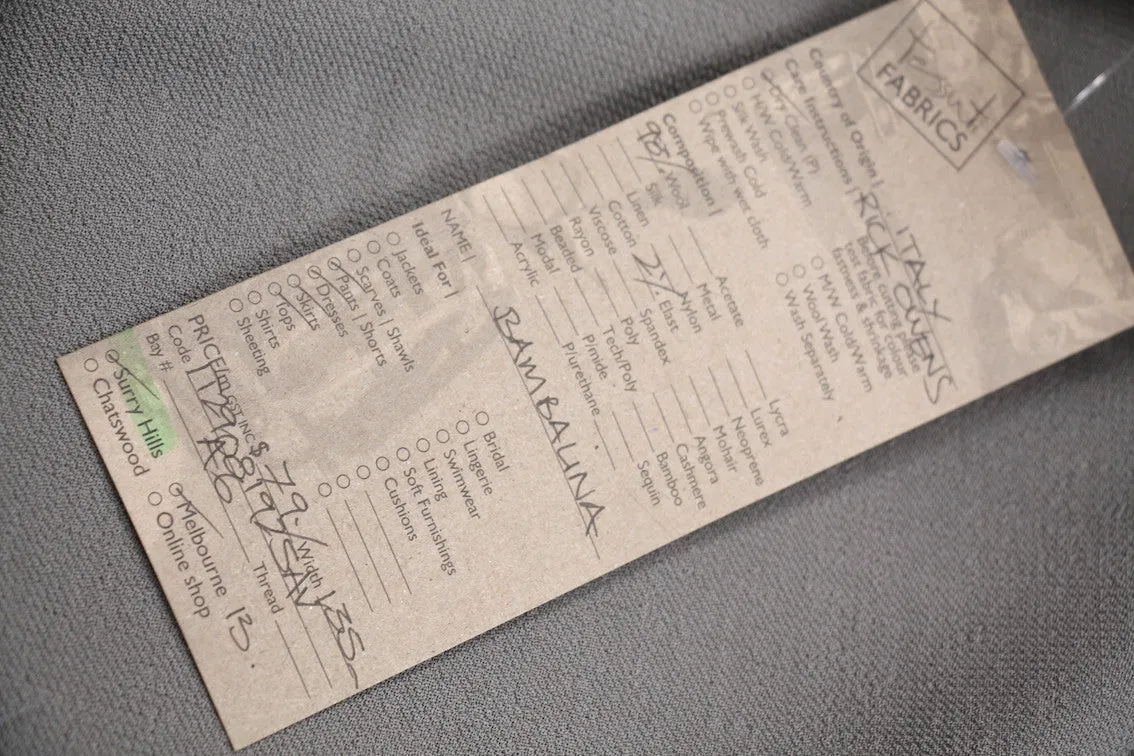 Tessuti
FABRICS
Country of Origin | ITALY
RICK OWENS
Care Instructions |
Before cutting please
test fabric for colour
fastness & shrinkage
Dry Clean (P)
H/W Cold/Warm
M/W Cold/Warm
Silk Wash
Wool Wash
Prewash Cold
Wash Separately
Wipe with wet cloth
Composition |
98% Wool
Acetate
Lycra
Silk
Metal
Lurex
Linen
Nylon
Neoprene
Cotton
2% Elast
Mohair
Viscose
Spandex
Angora
Rayon
Poly
Cashmere
Beaded
Tech/Poly
Bamboo
Modal
P/mide
Sequin
Acrylic
P/urethane
NAME | BAMBALINA
Ideal For |
Jackets
Bridal
Coats
Lingerie
Scarves | Shawls
Swimwear
Pants | Shorts
Lining
Dresses
Soft Furnishings
Skirts
Cushions
Tops
Shirts
Sheeting
PRICE/m GST INC $ 79. Width 135
Code |
Bay # A26 Thread
Surry Hills
Melbourne 13.
Chatswood
Online shop